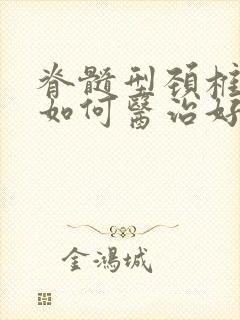 脊髓型颈椎
如何醫治好
金鴻城